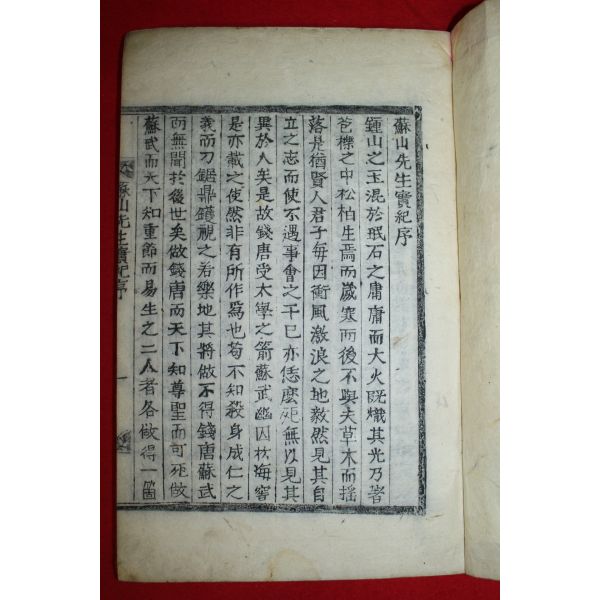 蘇山先生實紀序
鍾山之玉混於珉石之庸庸而大火旣熾其光乃著
苞櫟之中松栢生焉而歲寒而後不與夫草木而搖
落是猶賢人君子每因衝風激浪之地毅然見其自
立之志而使不遇事會之不已亦恁麽死無以見其
異於人矣是故錢唐受太學之箭蘇武幽囚於海窖
是亦載之使然非有所作爲也苟不知殺身成仁之
義而刀鋸鼎鑊視之若樂地其將做不得錢唐蘇武
而無聞於後世矣做錢唐而天下知尊聖而可死做
蘇武而天下知重節而易生之二人者各做得一箇
蘇山先生實紀序 一